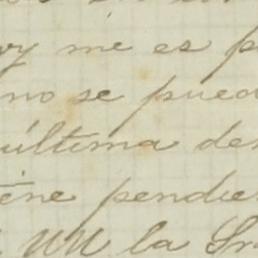 me es p
no se pued
última de
ene pendie
la Sra